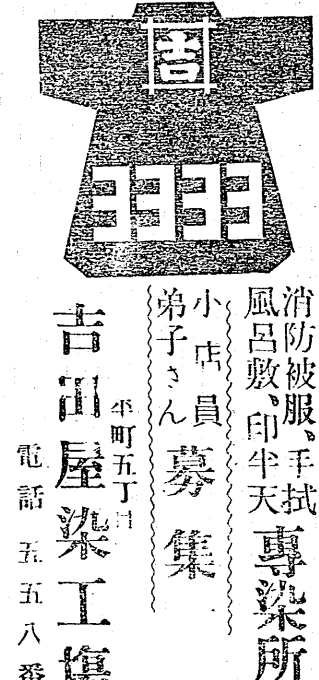 吉
消防被服、手拭
風呂敷、印半天
専染所
小店員
弟子さん
募集
平町五丁目
吉田屋染工場
電話 五五八番